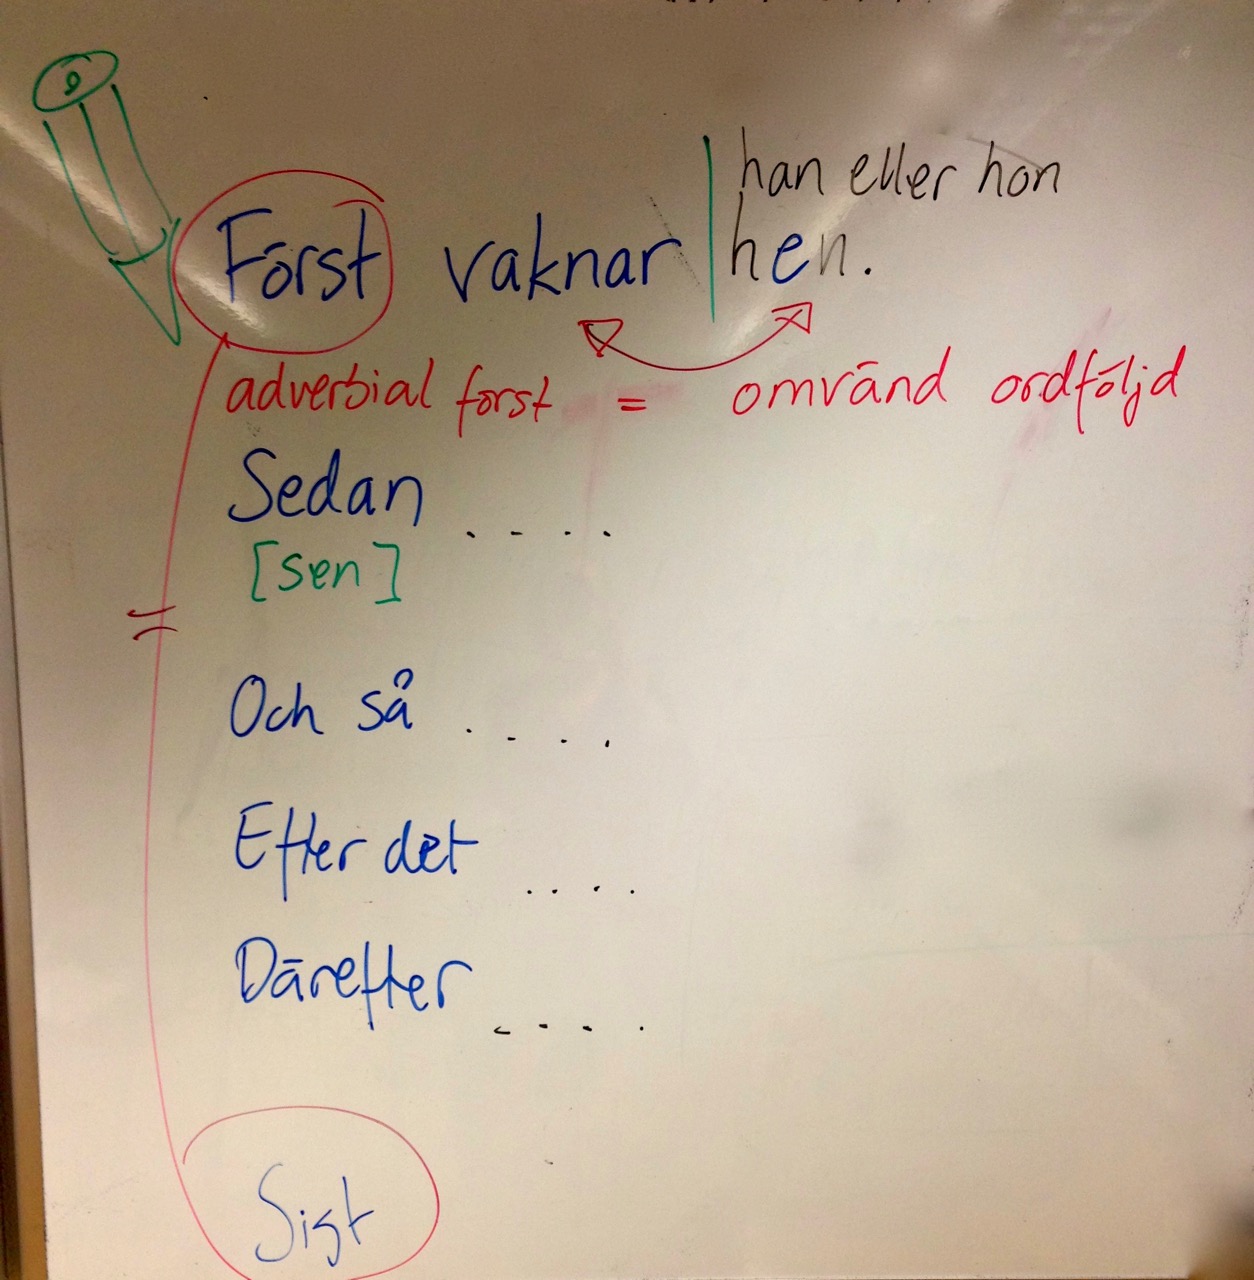 han eller hon
Först vaknar hen.
adverbial först = omvänd ordföljd
Sedan ....
[sen]
Och så ....
Efter det ....
Därefter ....
Sist